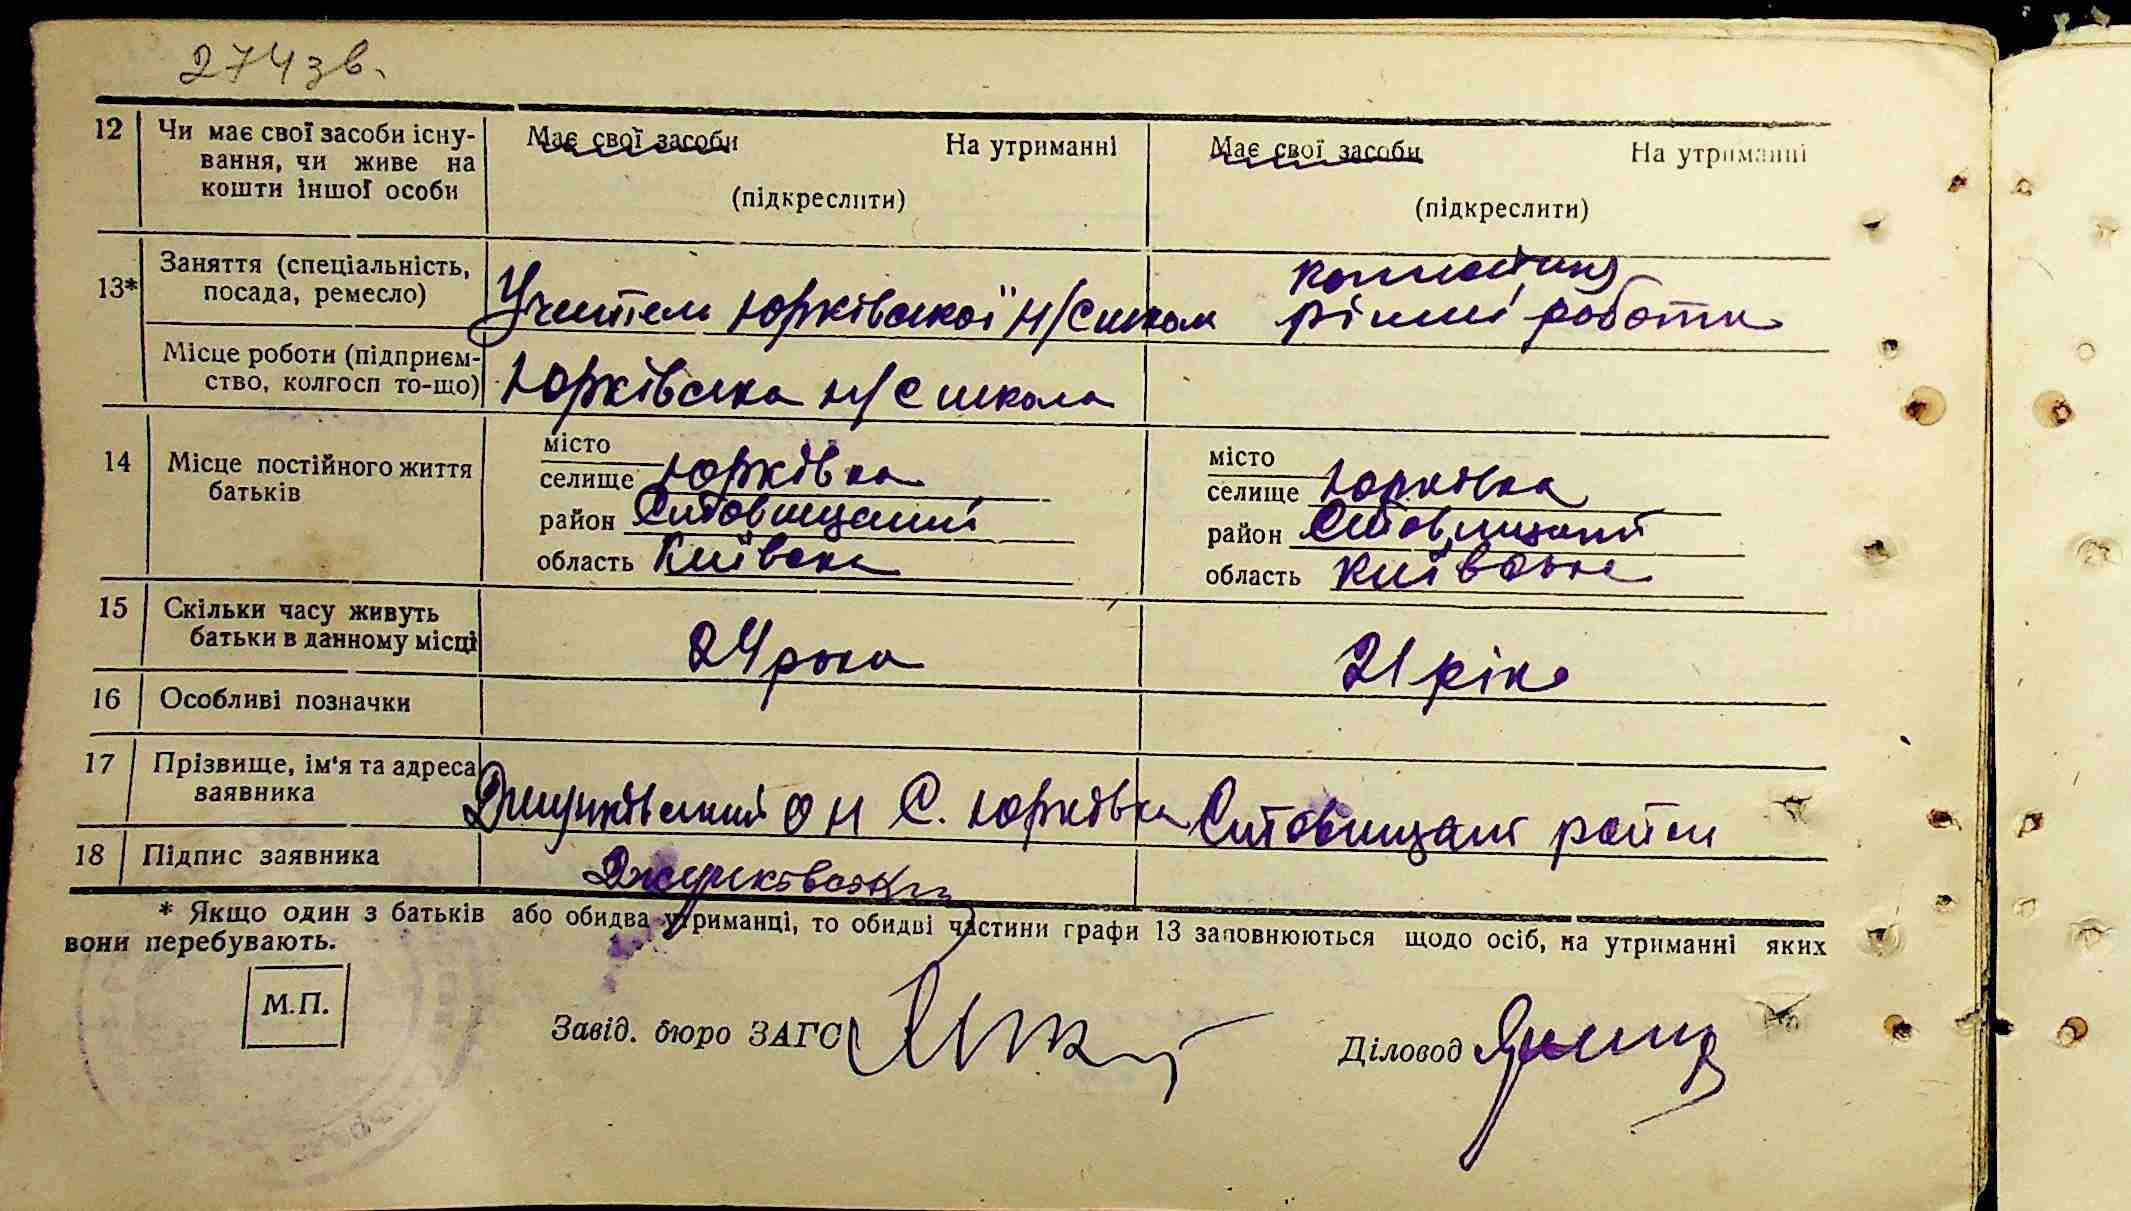 274 зв.
12 Чи має свої засоби існу- Має свої засоби На утриманні Має свої засоби На утриманні
вання, чи живе на
кошти іншої особи (підкреслити) (підкреслити)
13* Заняття (спеціальність,
посада, ремесло) Учитель Юрківської н/с школи різні роботи
Місце роботи (підприєм-
ство, колгосп то-що) Юрківська н/с школа
14 Місце постійного життя
батьків
місто місто
селище Юрківка селище Юрківка
район район
область Київська область Київська
15 Скільки часу живуть
батьки в данному місці 24 роки 21 рік
16 Особливі позначки
17 Прізвище, ім'я та адреса
заявника О Н С. Юрківка район
18 Підпис заявника
* Якщо один з батьків або обидва утриманці, то обидві частини графи 13 заповнюються щодо осіб, на утриманні яких
вони перебувають.
М.П.
Завід. бюро ЗАГС Діловод